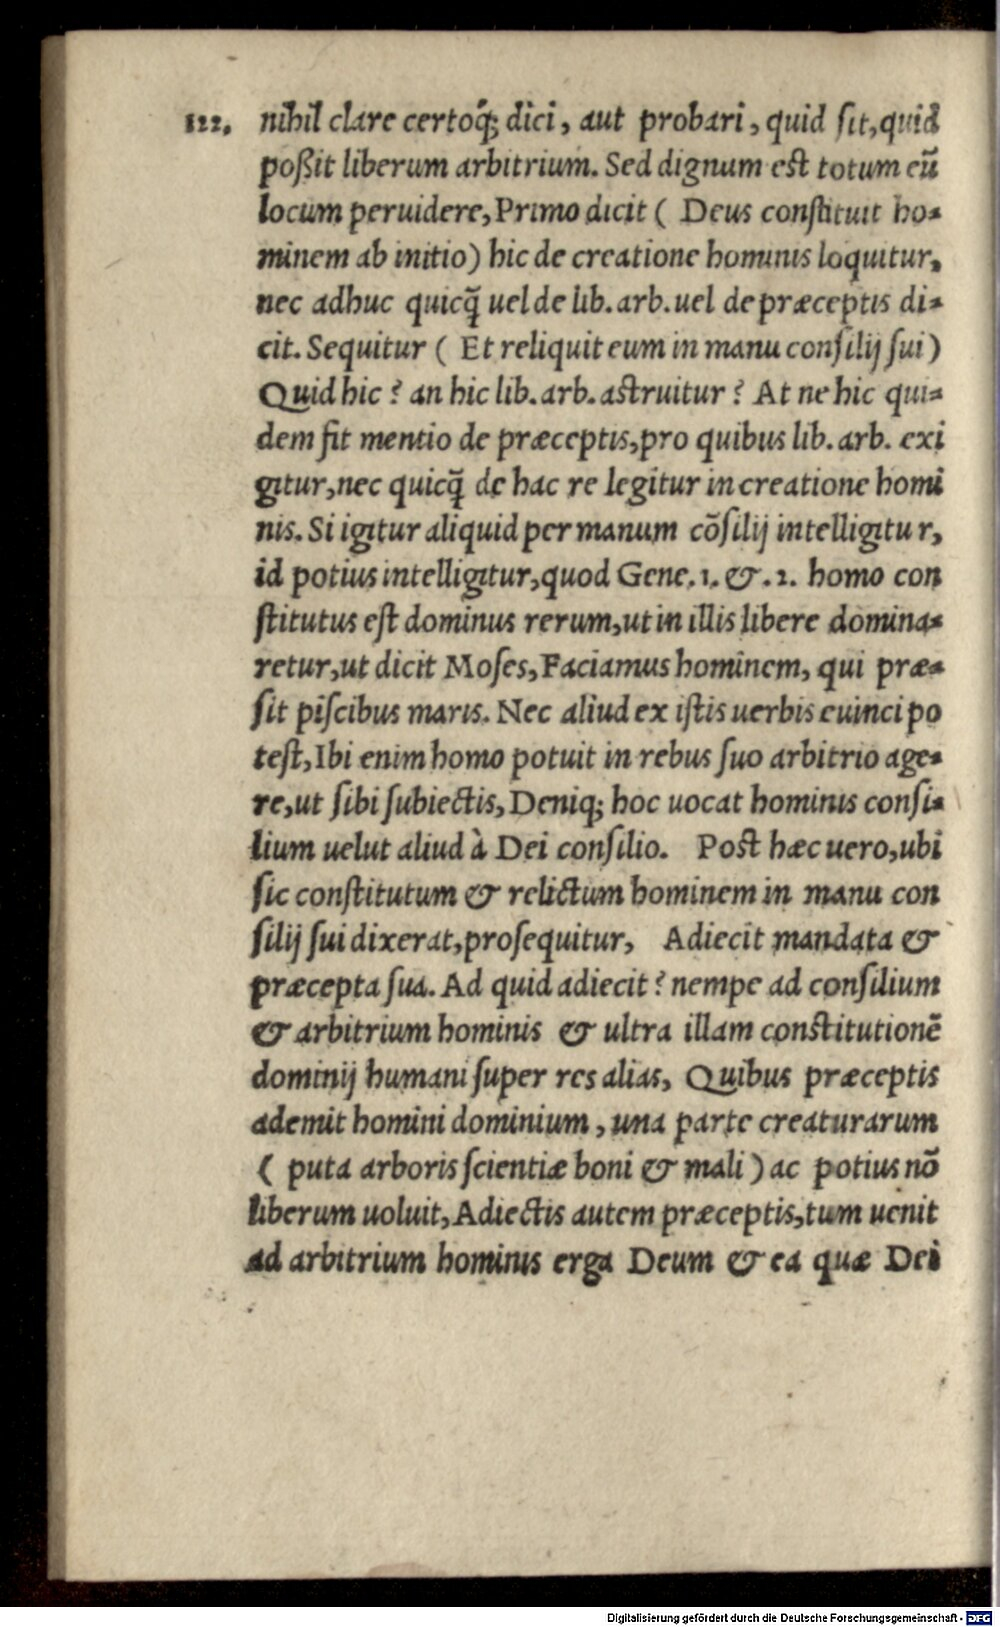 122. nihil clare certoq́; dici, aut probari, quid ſit, quid
poßit liberum arbitrium. Sed dignum est totum eū
locum peruidere, Primo dicit ( Deus conſtituit ho-
minem ab initio) hic de creatione hominis loquitur,
nec adhuc quicq̃ uel de lib. arb. uel de præceptis di-
cit. Sequitur ( Et reliquit eum in manu conſilij ſui )
Quid hic? an hic lib. arb. astruitur? At ne hic qui-
dem fit mentio de præceptis, pro quibus lib. arb. exi
gitur, nec quicq̃ de hac re legitur in creatione homi
nis. Si igitur aliquid per manum cōſilij intelligitur,
id potius intelligitur, quod Gene. 1. & .2. homo con
ſtitutus eſt dominus rerum, ut in illis libere domina-
retur, ut dicit Moſes, Faciamus hominem, qui præ-
ſit piſcibus maris. Nec aliud ex iſtis uerbis euinci po
teſt, Ibi enim homo potuit in rebus ſuo arbitrio age-
re, ut ſibi ſubiectis, Deniq; hoc uocat hominis conſi-
lium uelut aliud à Dei conſilio. Post hæc uero, ubi
ſic conſtitutum & relictum hominem in manu con
ſilij ſui dixerat, proſequitur, Adiecit mandata &
præcepta ſua. Ad quid adiecit? nempe ad conſilium
& arbitrium hominis & ultra illam constitutionē
dominij humani ſuper res alias, Quibus præceptis
ademit homini dominium, una parte creaturarum
( puta arboris ſcientiæ boni & mali ) ac potius nō
liberum uoluit, Adiectis autem præceptis, tum uenit
ad arbitrium hominis erga Deum & ea quæ Dei
Digitalisierung gefördert durch die Deutsche Forschungsgemeinschaft - DFG